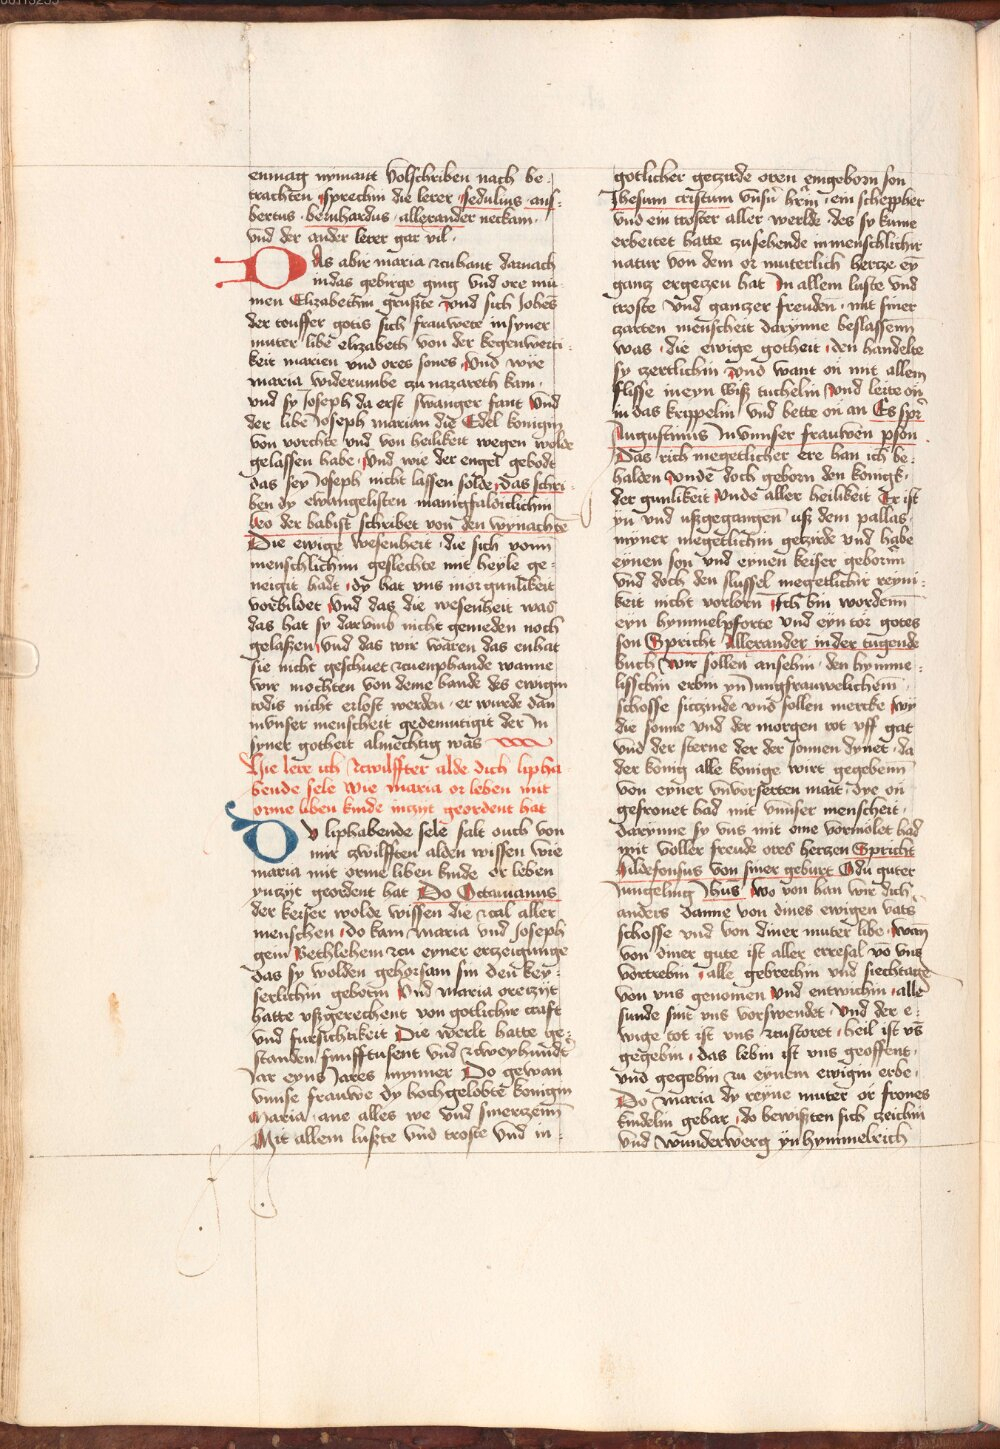 enmag nymant volschriben nach be⸗
trachten sprechin die lerer Sedulius ans⸗
bertus · bernhardus · allexander neckam ·
vnd der ander lerer gar vil ·
Das abir maria zcuhant darnach
in das gebirge ging vnd ore mu⸗
men Elizabethin grußte vnd sich Johēs
der touffer gotis sich frauwete in syner
muter libe elizabeth von der kegenwerti⸗
keit marien vnd ores sones Vnd wye
maria widerumbe czu nazareth kam ·
vnd sy Joseph da erst swanger fant Vnd
der libe Joseph marian die Edel konigin
von vorchte vnd von heilikeit wegen wolde
gelassen habe · Vnd wie der engel gebodt
das sey Joseph nicht lassen solde das schri⸗
ben dy ewangelisten manigfaldiclichin
Leo der babist schribet von den wynachtē
Die ewige wesenheit · die sich vonn
menschlichim geslechte mit heyle ge⸗
neigit hadt · dy hat vns in or gunlikeit
vorbildet Vnd das die wesenheit was
das hat sy darvmb nicht gemeden noch
gelaßen vnd das wir waren das enhat
sie nicht geschuet zcuenphande wanne
wir mochten von deme bande des ewigin
todis nicht erlost werden · er wurde dan
in vnser menscheit gedemutigit der In
syner gotheit almechtig was
Hie lere ich zcwilffter alde dich lipha⸗
bende sele wie maria or leben mit
orme liben kinde inczyt geordent hat
Du liphabende sele salt ouch von
mir zwilfften alden wissen wie
maria mit orme liben kinde or leben
ynczyt geordent hat Do Octauianus
der keiser wolde wissen die zcal aller
menschen · do kam Maria vnd Joseph
gein Bethlehem zcu eyner erczeigunge
das sy wolden gehorsam sin den key⸗
serlichin gebotin Vnd maria ore czyt
hatte vßgerechent von gotlicher craft
vnd fursichtikeit Die werlt hatte ge⸗
standen funfftusent vnd zcweyhundt
Jar eyns Jares mynner Do gewan
vnnse frauwe dy hochgelobte konigin
Maria · ane alles we vnd smerczenn
Mit allem lußte vnd troste vnd in⸗
gotlicher geczirde oren eingeborn son
Jhesum cristum vnsn hrin · ein schepphер
vnd ein troster aller werlde · des sy kume
erbeitet hatte zusehende in menschlichir
natur von dem or muterlich hercze ey
gancz ergeczen hat In allem luste vnd
troste vnd ganczer freuden · mit siner
zarten menscheit darynne beslassenn
was · die ewige gotheit · den handelte
sy czertlichin Vnd want on mit allem
flisse in eyn wiß tuchelin Vnd leite on
in das krippelin vnd bette on an Es spr
Augustinus In vnnser frauwen pson
Das rich megetlicher ere han ich be⸗
halden Vnde doch geborn den konigk ·
der gunlikeit Vnde aller heilikeit Er ist
yn vnd vßgegangen vß dem pallas
myner megetlichin geczirde vnd habe
eynen son vnd eynen keiser geborin
vnd doch den slussel megetlichir reyni⸗
keit nicht vorlorn Ich bin wordenn
eyn hymmelpforte vnd eyn tor gotes
son Spricht Allexander in der tugende
buch Wir sollen ansehin · den hymme⸗
lisschin erbin yn Jungfrauwelichem
schosse siczinde vnd sollen mercke wy
die sonne vnd der morgen rot vff gat
vnd der sterne der der sonnen dynet · da
der konig alle konige wirt gegebenn
von eyner vnvorserten mait · dye on
gesronet had mit vnnser menscheit ·
darynne sy vns mit ome vormolet had
mit voller freude ores herczen Spricht
Hildefonsus von siner geburt O du guter
Jungeling Jhus wo von han wir dich
anders danne von dines ewigen vats
schosse vnd von diner muter libe · wan
von diner gute ist aller erresal vō vns
vortrebin · alle gebrechin vnd siechtage
von vns genomen Vnd entwichin · alle
sunde sint vns vorswendet · vnd der e⸗
wige tot ist vns zcustoret · heil ist vs
gegebin · das lebin ist vns geoffent ·
vnd gegebin zu eynem ewigin erbe ·
Do maria dy reyne muter or frones
kindelin gebar · do bewißten sich zeichin
vnd wunderwerg yn hymmelrich